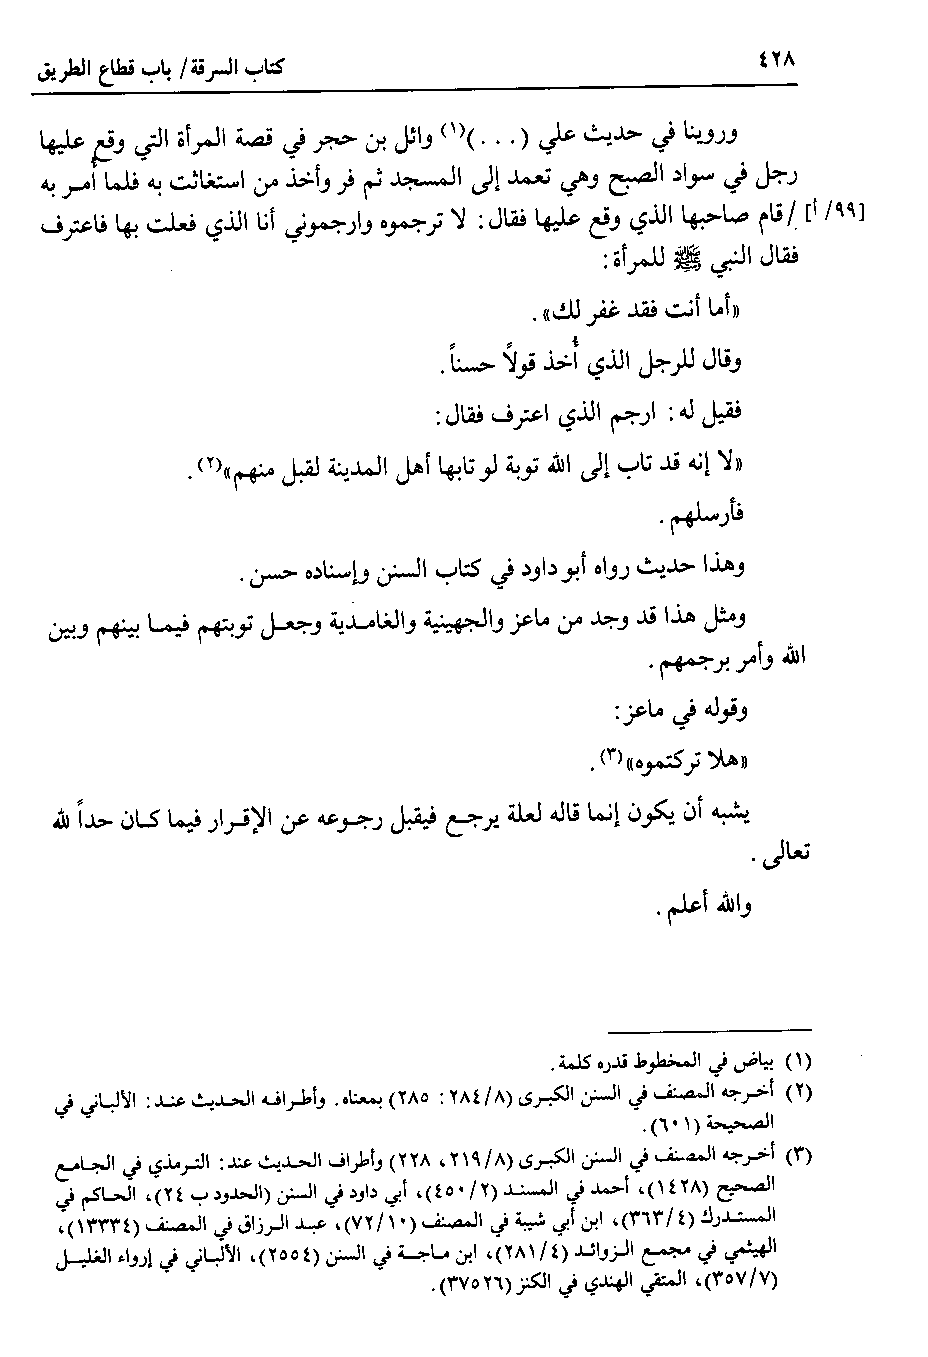 ٤٢٨
كتاب السرقة/ باب قطاع الطريق
وروينا في حديث علي (. . .)(١) وائل بن حجر في قصة المرأة التي وقع عليها
رجل في سواد الصبح وهي تعمد إلى المسجد ثم فر وأخذ من استغاثت به فلما أمر به
[٩٩/ أ] /قام صاحبها الذي وقع عليها فقال: لا ترجموه وارجموني أنا الذي فعلت بها فاعترف
فقال النبي ﷺ للمرأة:
«أما أنت فقد غفر لك».
وقال للرجل الذي أُخذ قولاً حسناً.
فقيل له: ارجم الذي اعترف فقال:
«لا إنه قد تاب إلى الله توبة لو تابها أهل المدينة لقبل منهم»(٢).
فأرسلهم.
وهذا حديث رواه أبو داود في كتاب السنن وإسناده حسن.
ومثل هذا قد وجد من ماعز والجهينية والغامدية وجعل توبتهم فيما بينهم وبين
الله وأمر برجمهم.
وقوله في ماعز:
«هلا تركتموه»(٣).
يشبه أن يكون إنما قاله لعلة يرجع فيقبل رجوعه عن الإقرار فيما كان حداً لله
تعالى.
والله أعلم.
(١) بياض في المخطوط قدره كلمة.
(٢) أخرجه المصنف في السنن الكبرى (٢٨٤/٨ : ٢٨٥) بمعناه. وأطرافه الحديث عند: الألباني في
الصحيحة (٦٠١).
(٣) أخرجه المصنف في السنن الكبرى (٢١٩/٨، ٢٢٨) وأطراف الحديث عند: الترمذي في الجامع
الصحيح (١٤٢٨)، أحمد في المسند (٤٥٠/٢)، أبي داود في السنن (الحدود ب ٢٤)، الحاكم في
المستدرك (٣٦٣/٤)، ابن أبي شيبة في المصنف (٧٢/١٠)، عبد الرزاق في المصنف (١٣٣٣٤)،
الهيثمي في مجمع الزوائد (٢٨١/٤)، ابن ماجة في السنن (٢٥٥٤)، الألباني في إرواء الغليل
(٣٥٧/٧)، المتقي الهندي في الكنز (٣٧٥٢٦).